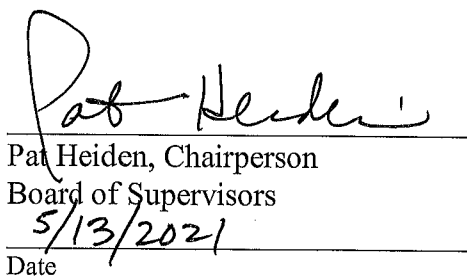 Pat Heiden
Pat Heiden, Chairperson
Board of Supervisors
5/13/2021
Date